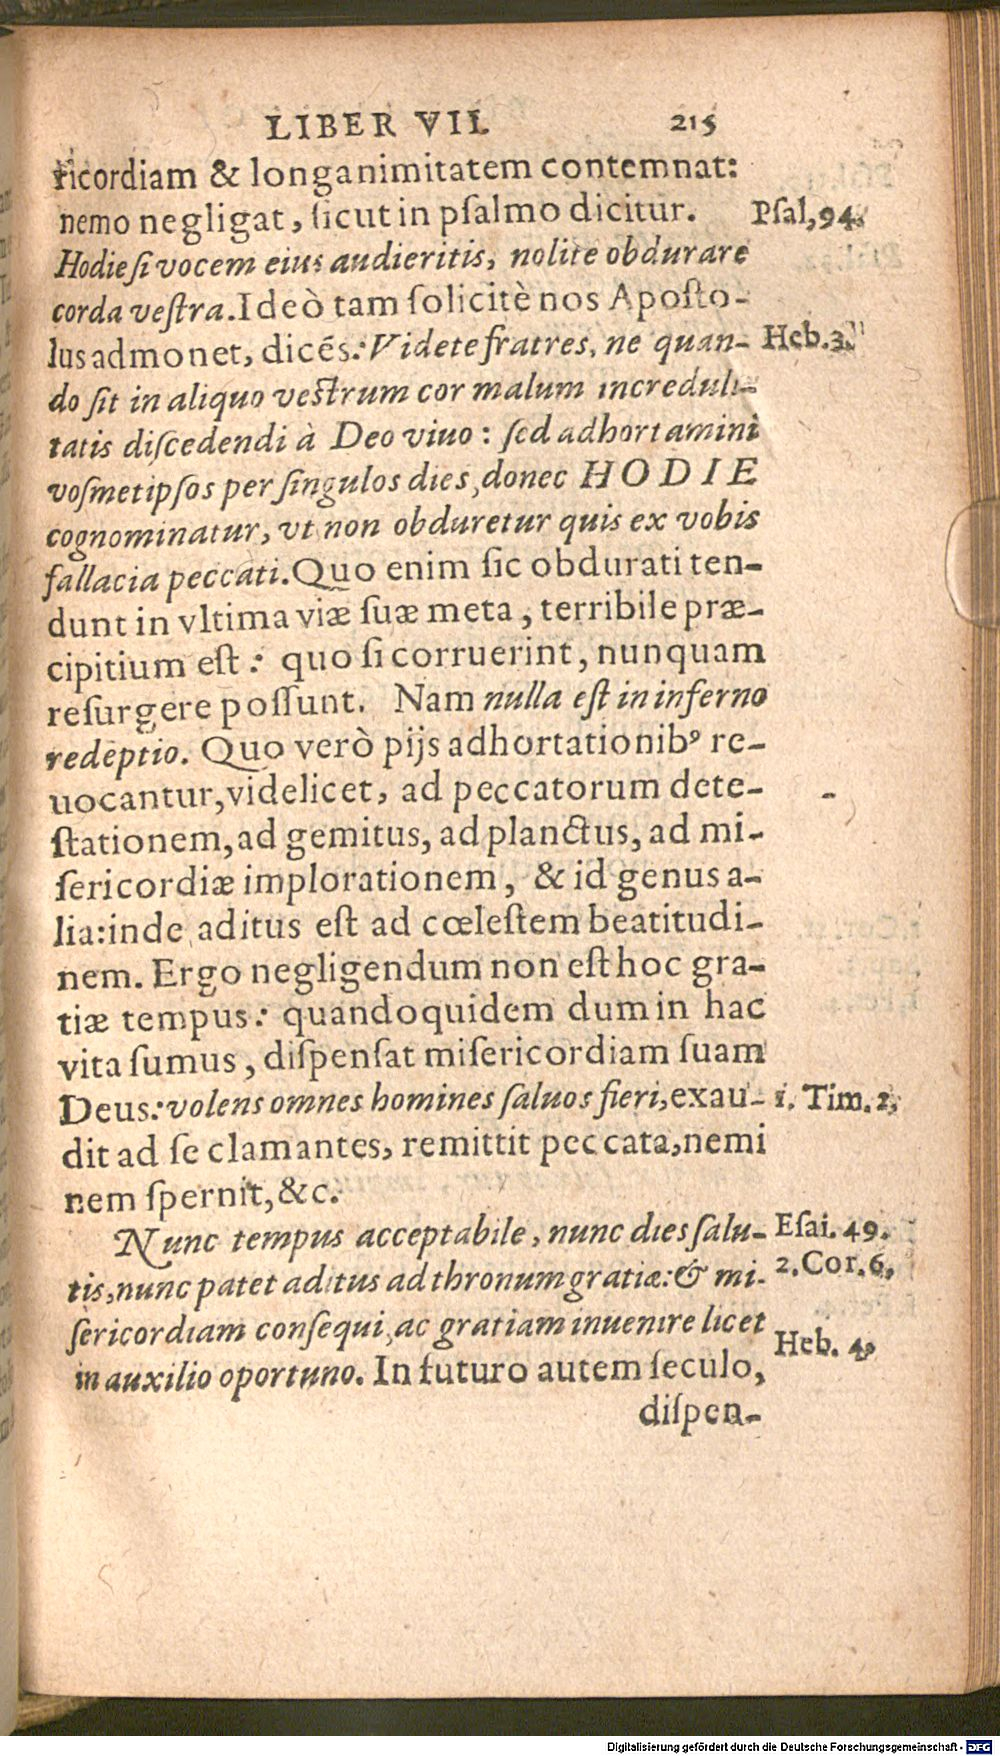 LIBER VII. 215
ricordiam & longanimitatem contemnat:
nemo negligat, sicut in psalmo dicitur. Psal,94.
Hodie si vocem eius audieritis, nolite obdurare
corda vestra. Ideò tam solicitè nos Aposto-
lus admonet, dicẽs: Videte fratres, ne quan- Heb.3.
do sit in aliquo vestrum cor malum increduli-
tatis discedendi à Deo viuo: sed adhortamini
vosmetipsos per singulos dies, donec HODIE
cognominatur, vt non obduretur quis ex vobis
fallacia peccati. Quo enim sic obdurati ten-
dunt in vltima viæ suæ meta, terribile præ-
cipitium est: quo si corruerint, nunquam
resurgere possunt. Nam nulla est in inferno
redẽptio. Quo verò pijs adhortationibꝰ re-
uocantur, videlicet, ad peccatorum dete-
stationem, ad gemitus, ad planctus, ad mi-
sericordiæ implorationem, & id genus a-
lia: inde aditus est ad cœlestem beatitudi-
nem. Ergo negligendum non est hoc gra-
tiæ tempus: quandoquidem dum in hac
vita sumus, dispensat misericordiam suam
Deus: volens omnes homines saluos fieri, exau- 1. Tim. 2,
dit ad se clamantes, remittit peccata, nemi
nem spernit, &c.
Nunc tempus acceptabile, nunc dies salu- Esai. 49.
tis, nunc patet aditus ad thronum gratiæ: & mi- 2. Cor. 6,
sericordiam consequi, ac gratiam inuenire licet
in auxilio oportuno. In futuro autem seculo, Heb. 4,
dispen-
Digitalisierung gefördert durch die Deutsche Forschungsgemeinschaft - DFG